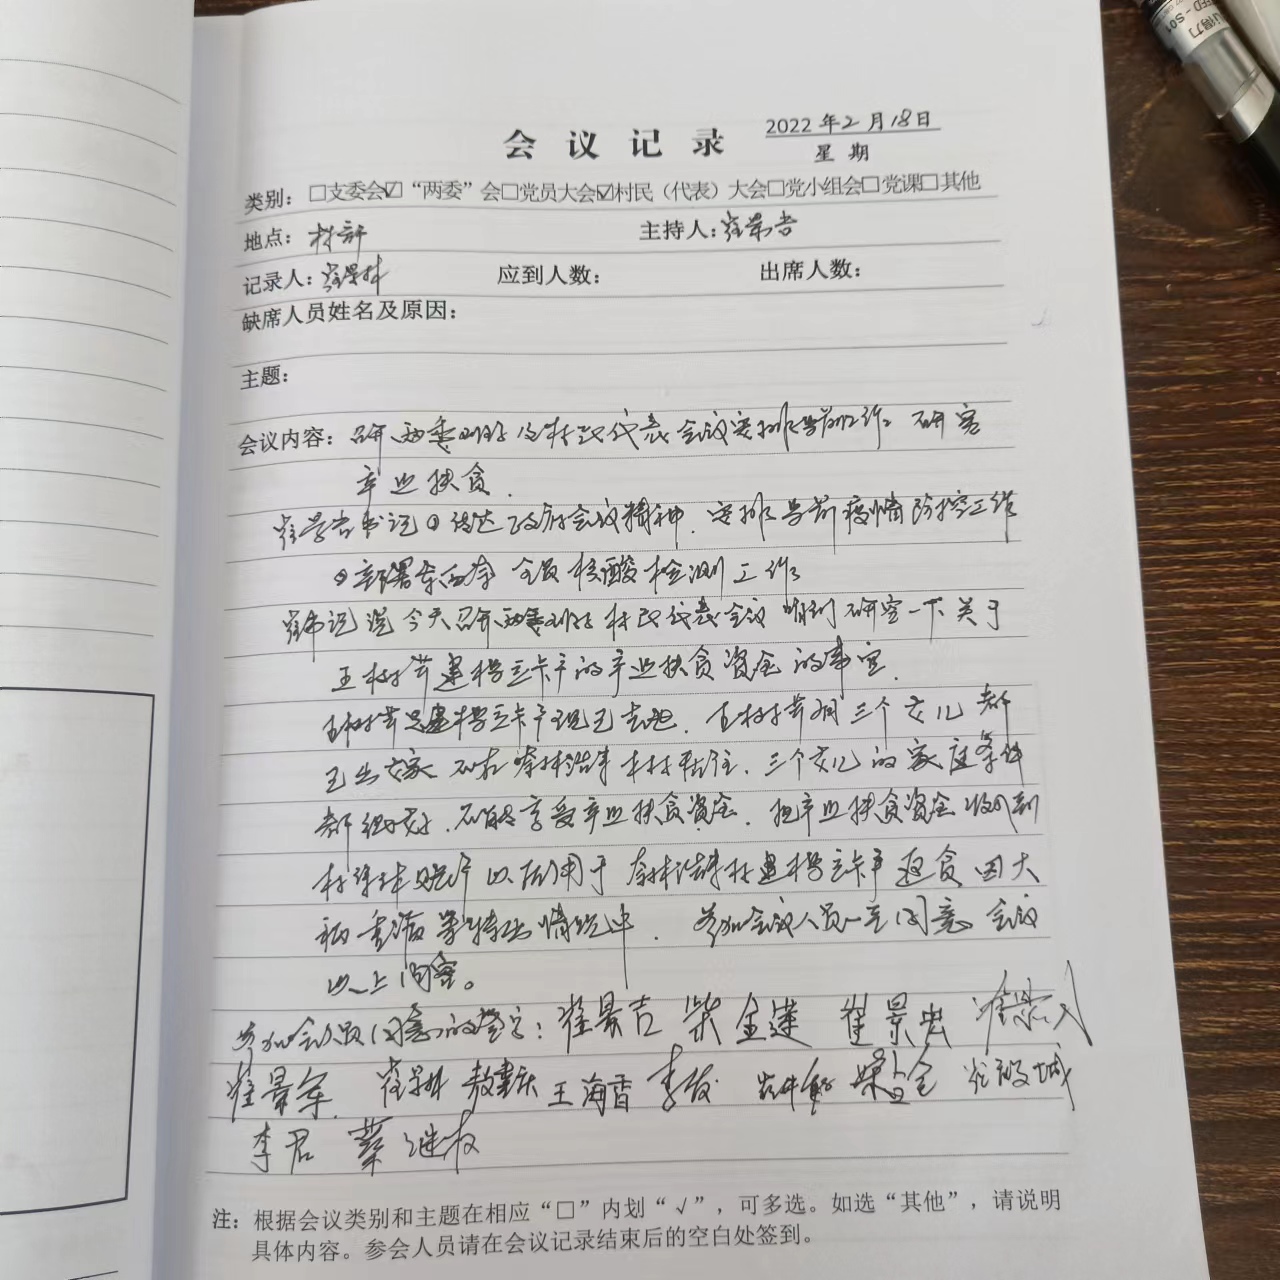 会议记录
2022年2月18日
星期
类别：□支委会☑“两委”会□党员大会☑村民（代表）大会□党小组会□党课□其他
地点：村部
主持人：崔景吉
记录人：崔景林
应到人数：
出席人数：
缺席人员姓名及原因：
主题：
会议内容：召开两委班子及村民代表会议安排当前工作 研究
产业扶贫.
崔景吉书记①传达政府会议精神.安排当前疫情防控工作
②部署 全员核酸检测工作
崔书记说今天召开两委班子村民代表会议 研究一下关于
王树芳建档立卡户的产业扶贫资金的事宜.
王树芳是建档立卡户现已去世.王树芳有三个女儿都
已出嫁 不在 村居住.三个女儿的家庭条件
都很好.不能享受产业扶贫资金.把产业扶贫资金收到
村集体账户以后用于 村建档立卡户返贫因大
病 等特殊情况中. 参加会议人员一至同意会议
以上内容。
参加会人员同意的签字：崔景吉 柴金莲 崔景
崔景军 崔景林 敖 王海香 李 梁 全
李君 蔡继权
注：根据会议类别和主题在相应“□”内划“√”，可多选。如选“其他”，请说明
具体内容。参会人员请在会议记录结束后的空白处签到。
得力
-S01